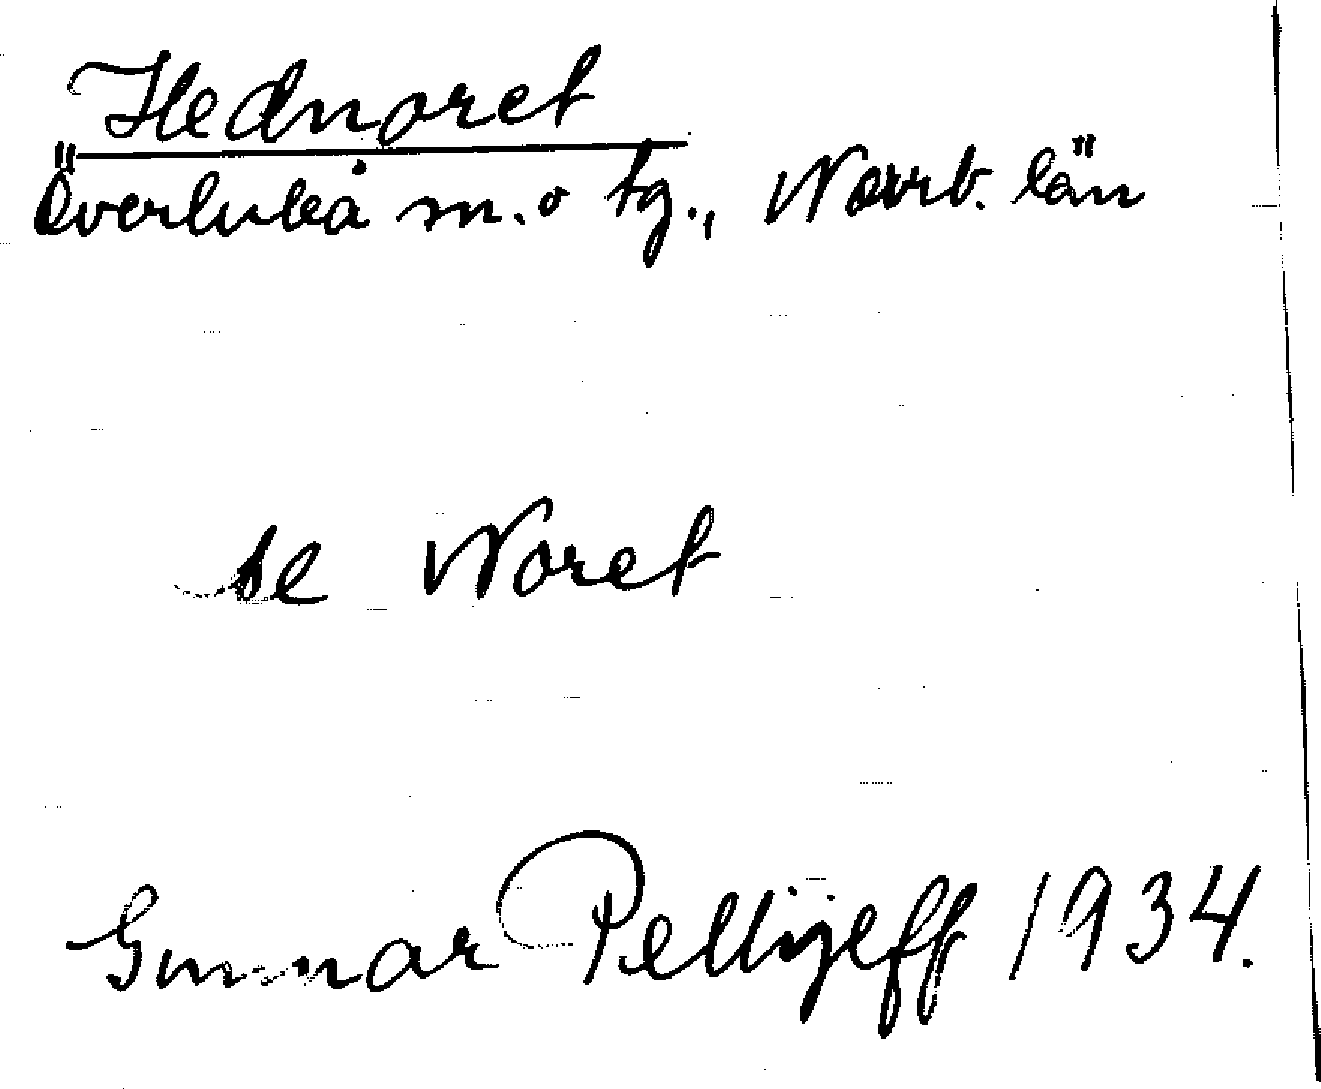 Hednoret
Överluleå m. o tg., Norrb. län
se Noret
Gunnar Pellijeff 1934.